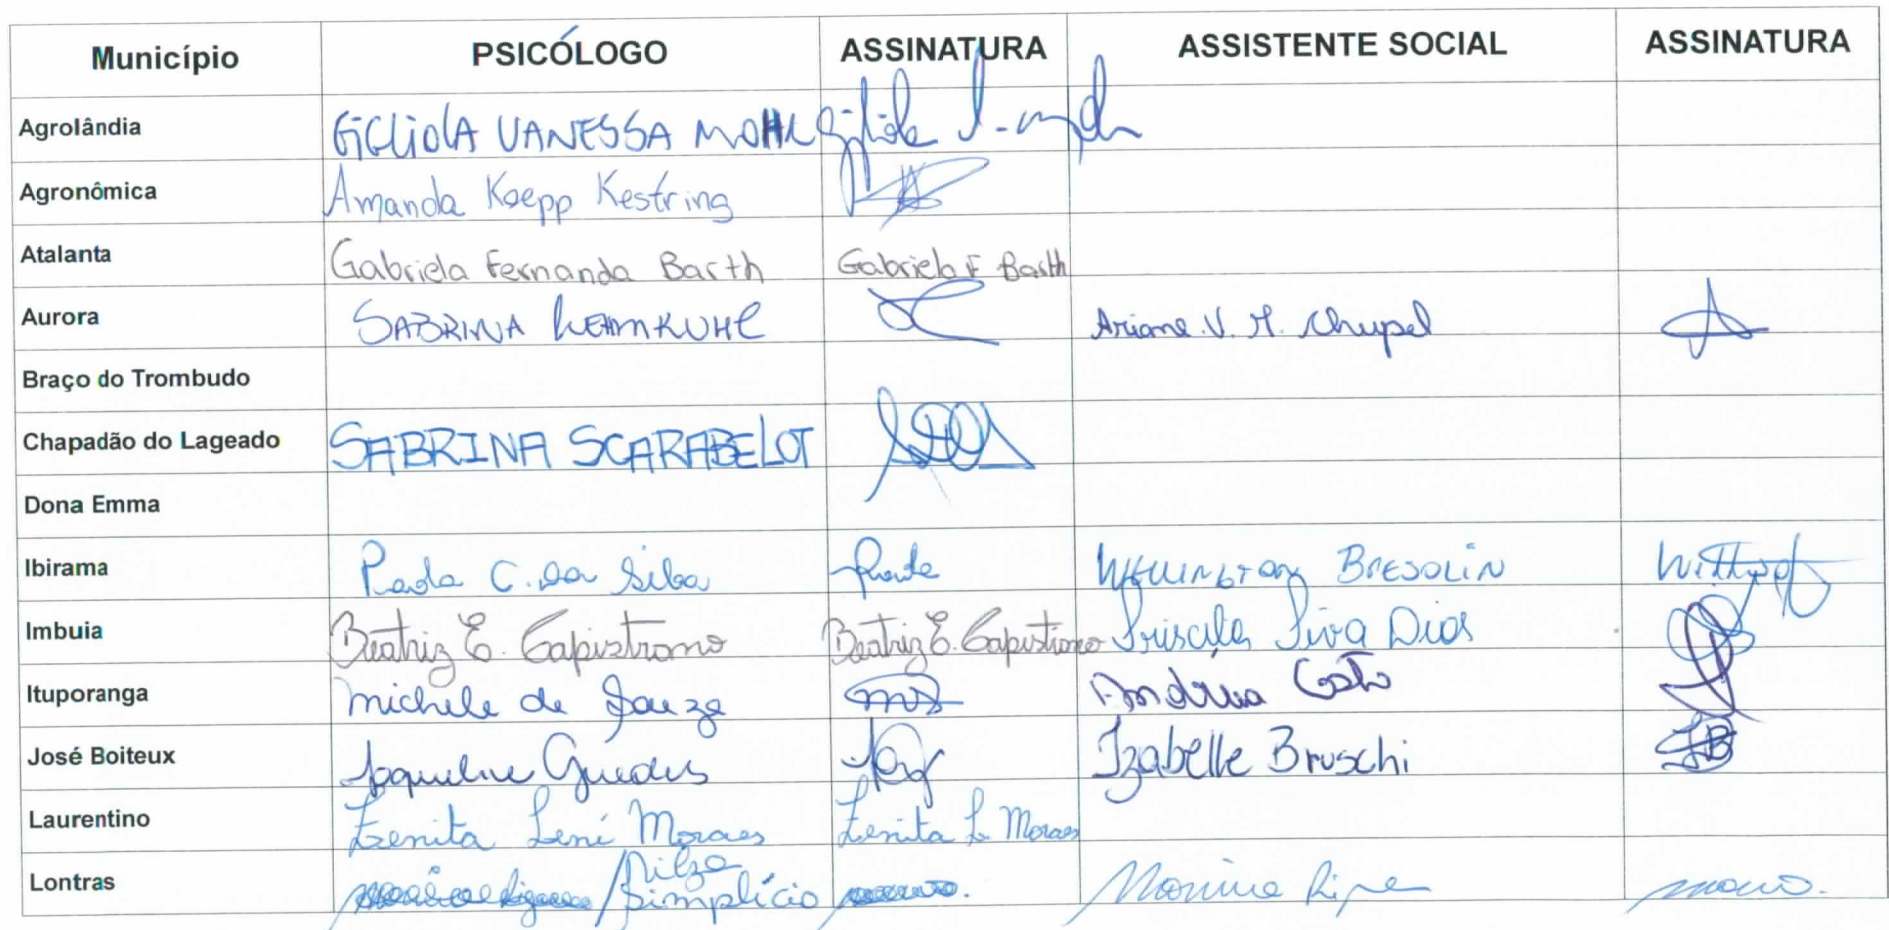 Município PSICÓLOGO ASSINATURA ASSISTENTE SOCIAL ASSINATURA
Agrolândia GIGLIOLA VANESSA MOHR
Agronômica Amanda Koepp Kestring
Atalanta Gabriela Fernanda Barth Gabriela F Barth
Aurora SABRINA LEHMKUHL Ariane V. M. Chupel
Braço do Trombudo
Chapadão do Lageado SABRINA SCARABELOT
Dona Emma
Ibirama Paola C. da Silva WELLINGTON BRESOLIN
Imbuia Beatriz E. Capistrano Beatriz E. Capistrano Priscila Piva Dias
Ituporanga Michele de Souza Andréia
José Boiteux Jaqueline Guedes Izabelle Bruschi
Laurentino Zenita Leni Moraes Zenita L Moraes
Lontras Nilza Simplício